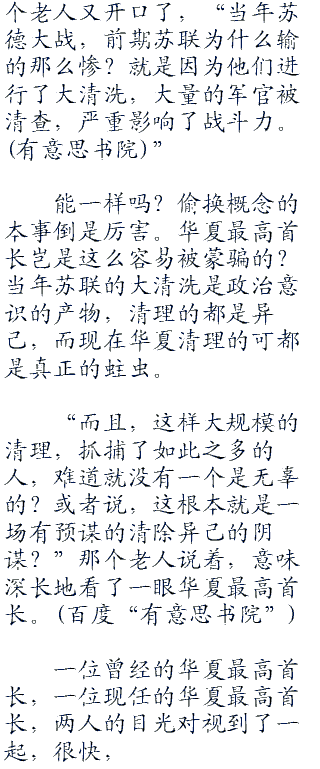 个老人又开口了，“当年苏
德大战，前期苏联为什么输
的那么惨？就是因为他们进
行了大清洗，大量的军官被
清查，严重影响了战斗力。
(有意思书院)”
能一样吗？偷换概念的
本事倒是厉害。华夏最高首
长岂是这么容易被蒙骗的？
当年苏联的大清洗是政治意
识的产物，清理的都是异
己，而现在华夏清理的可都
是真正的蛀虫。
“而且，这样大规模的
清理，抓捕了如此之多的
人，难道就没有一个是无辜
的？或者说，这根本就是一
场有预谋的清除异己的阴
谋？”那个老人说着，意味
深长地看了一眼华夏最高首
长。(百度“有意思书院”)
一位曾经的华夏最高首
长，一位现任的华夏最高首
长，两人的目光对视到了一
起，很快，